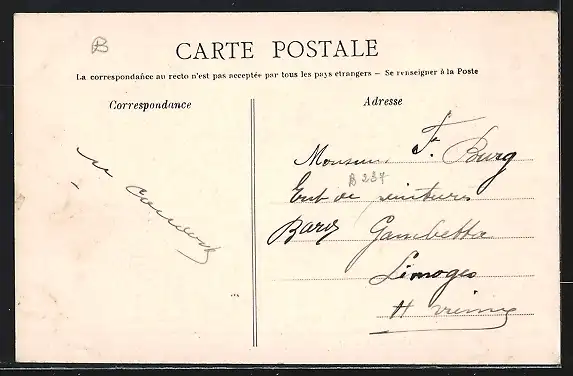 B
CARTE POSTALE
La correspondance au recto n'est pas acceptée par tous les pays étrangers — Se renseigner à la Poste
Correspondance
Adresse
Monsieur F. Burg
B 237
Ent de peintures
Gambetta
Limoges
Hte Vienne